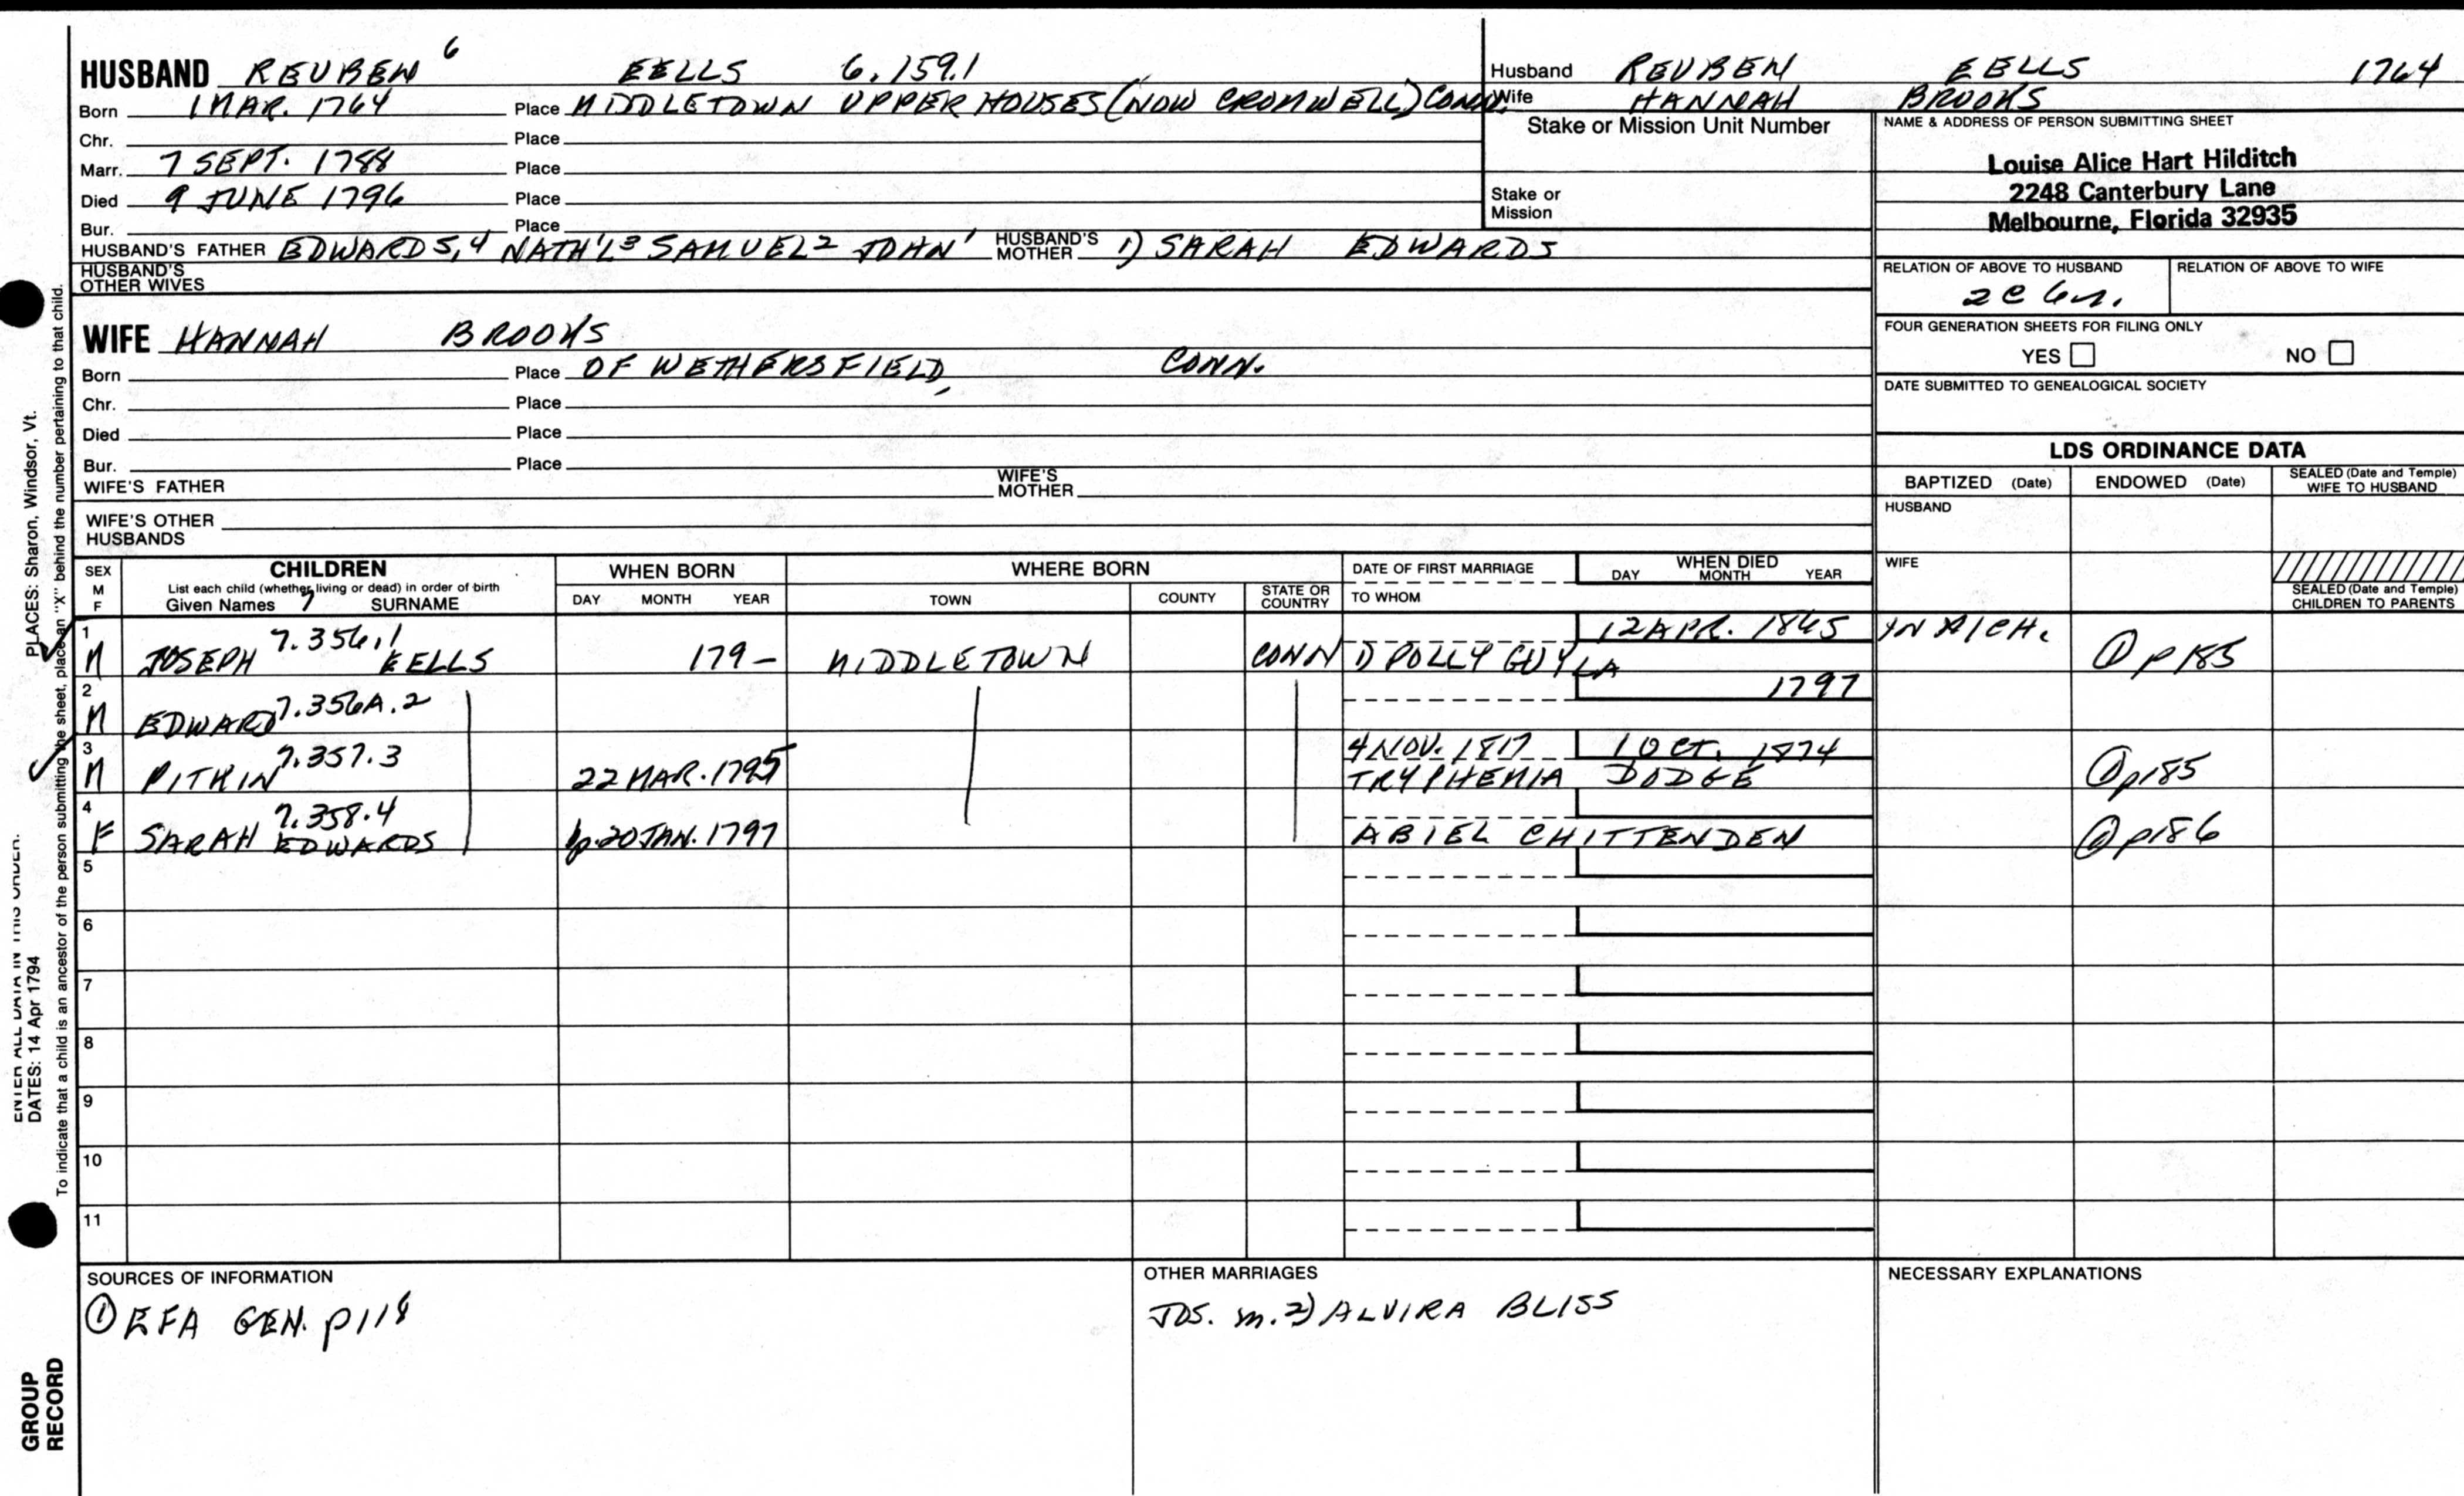 HUSBAND REUBEN 6 EELLS 6.159.1
Born 1 MAR. 1764 Place MIDDLETOWN UPPER HOUSES (NOW CROMWELL) CONN.
Chr. Place
Marr. 7 SEPT. 1788 Place
Died 9 JUNE 1796 Place
Bur. Place
HUSBAND'S FATHER EDWARD 5,4 NATH'L 3 SAMUEL 2 JOHN 1 HUSBAND'S MOTHER 1) SARAH EDWARDS
HUSBAND'S OTHER WIVES
Husband REUBEN EELLS 1764
Wife HANNAH BROOKS
Stake or Mission Unit Number
Stake or Mission
NAME & ADDRESS OF PERSON SUBMITTING SHEET
Louise Alice Hart Hilditch
2248 Canterbury Lane
Melbourne, Florida 32935
RELATION OF ABOVE TO HUSBAND RELATION OF ABOVE TO WIFE
2 C 6
FOUR GENERATION SHEETS FOR FILING ONLY
YES NO
DATE SUBMITTED TO GENEALOGICAL SOCIETY
WIFE HANNAH BROOKS
Born Place OF WETHERSFIELD, CONN.
Chr. Place
Died Place
Bur. Place
WIFE'S FATHER WIFE'S MOTHER
WIFE'S OTHER HUSBANDS
LDS ORDINANCE DATA
BAPTIZED (Date) ENDOWED (Date) SEALED (Date and Temple) WIFE TO HUSBAND
HUSBAND
WIFE
SEALED (Date and Temple) CHILDREN TO PARENTS
SEX M F CHILDREN WHEN BORN WHERE BORN DATE OF FIRST MARRIAGE WHEN DIED
List each child (whether living or dead) in order of birth
Given Names 7 SURNAME DAY MONTH YEAR TOWN COUNTY STATE OR COUNTRY TO WHOM DAY MONTH YEAR
1 7.356.1 12 APR. 1865 IN MICH.
M JOSEPH EELLS 179- MIDDLETOWN CONN 1) POLLY GUYLA ① p185
2 7.356A.2 1797
M EDWARD
3 7.357.3 4 NOV. 1817 1 OCT. 1874
M PITKIN 22 MAR. 1795 TRYPHENIA DODGE ① p185
4 7.358.4
F SARAH EDWARDS bp. 20 JAN. 1797 ABIEL CHITTENDEN ① p186
5
6
7
8
9
10
11
SOURCES OF INFORMATION
① EFA GEN. p118
OTHER MARRIAGES
JOS. m. 2) ALVIRA BLISS
NECESSARY EXPLANATIONS
ENTER ALL DATA IN THIS ORDER:
DATES: 14 Apr 1794 PLACES: Sharon, Windsor, Vt.
To indicate that a child is an ancestor of the person submitting the sheet, place an "X" behind the number pertaining to that child.
GROUP
RECORD